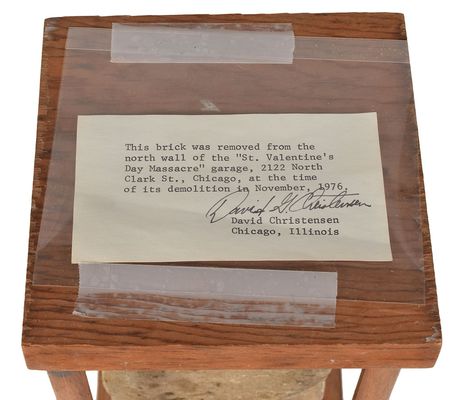 This brick was removed from the
north wall of the "St. Valentine's
Day Massacre" garage, 2122 North
Clark St., Chicago, at the time
of its demolition in November, 1976.
David G. Christensen
David Christensen
Chicago, Illinois